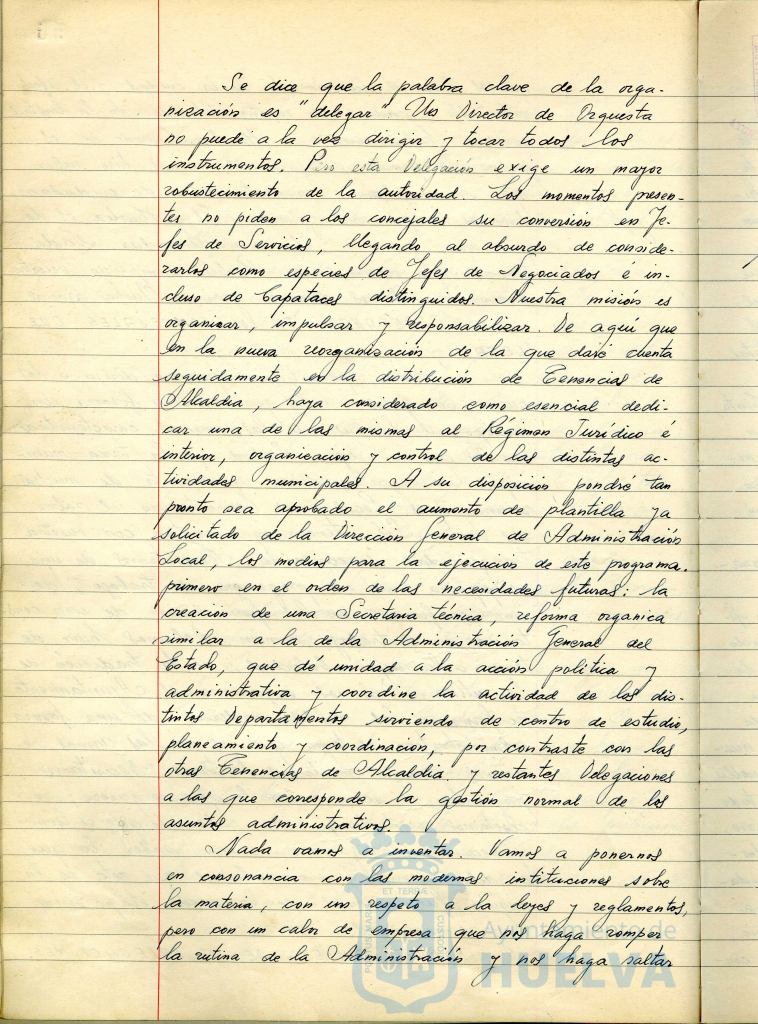 Se dice que la palabra clave de la orga-
nización es "delegar". Un Director de Orquesta
no puede a la vez dirigir y tocar todos los
instrumentos. Pero esta Delegación exige un mayor
robustecimiento de la autoridad. Los momentos presen-
tes no piden a los concejales su conversión en Je-
fes de Servicios, llegando al absurdo de conside-
rarlos como especies de Jefes de Negociados é in-
cluso de Capataces distinguidos. Nuestra misión es
organizar, impulsar y responsabilizar. De aquí que
en la nueva reorganización de la que daré cuenta
seguidamente en la distribución de Tenencias de
Alcaldia, haya considerado como esencial dedi-
car una de las mismas al Régimen Jurídico é
interior, organización y control de las distintas ac-
tividades municipales. A su disposición pondré tan
pronto sea aprobado el aumento de plantilla ya
solicitado de la Dirección General de Administración
Local, los medios para la ejecución de este programa.
primero en el orden de las necesidades futuras: la
creación de una Secretaria técnica, reforma organica
similar a la de la Administración General del
Estado, que dé unidad a la acción politica y
administrativa y coordine la actividad de los dis-
tintos Departamentos sirviendo de centro de estudio,
planeamiento y coordinación, por contraste con las
otras Tenencias de Alcaldia y restantes Delegaciones
a las que corresponde la gestión normal de los
asuntos administrativos.
Nada vamos a inventar. Vamos a ponernos
en consonancia con las modernas instituciones sobre
la materia, con un respeto a la leyes y reglamentos,
pero con un calor de empresa que nos haga romper
la rutina de la Administración y nos haga saltar
Ayuntamiento de
HUELVA